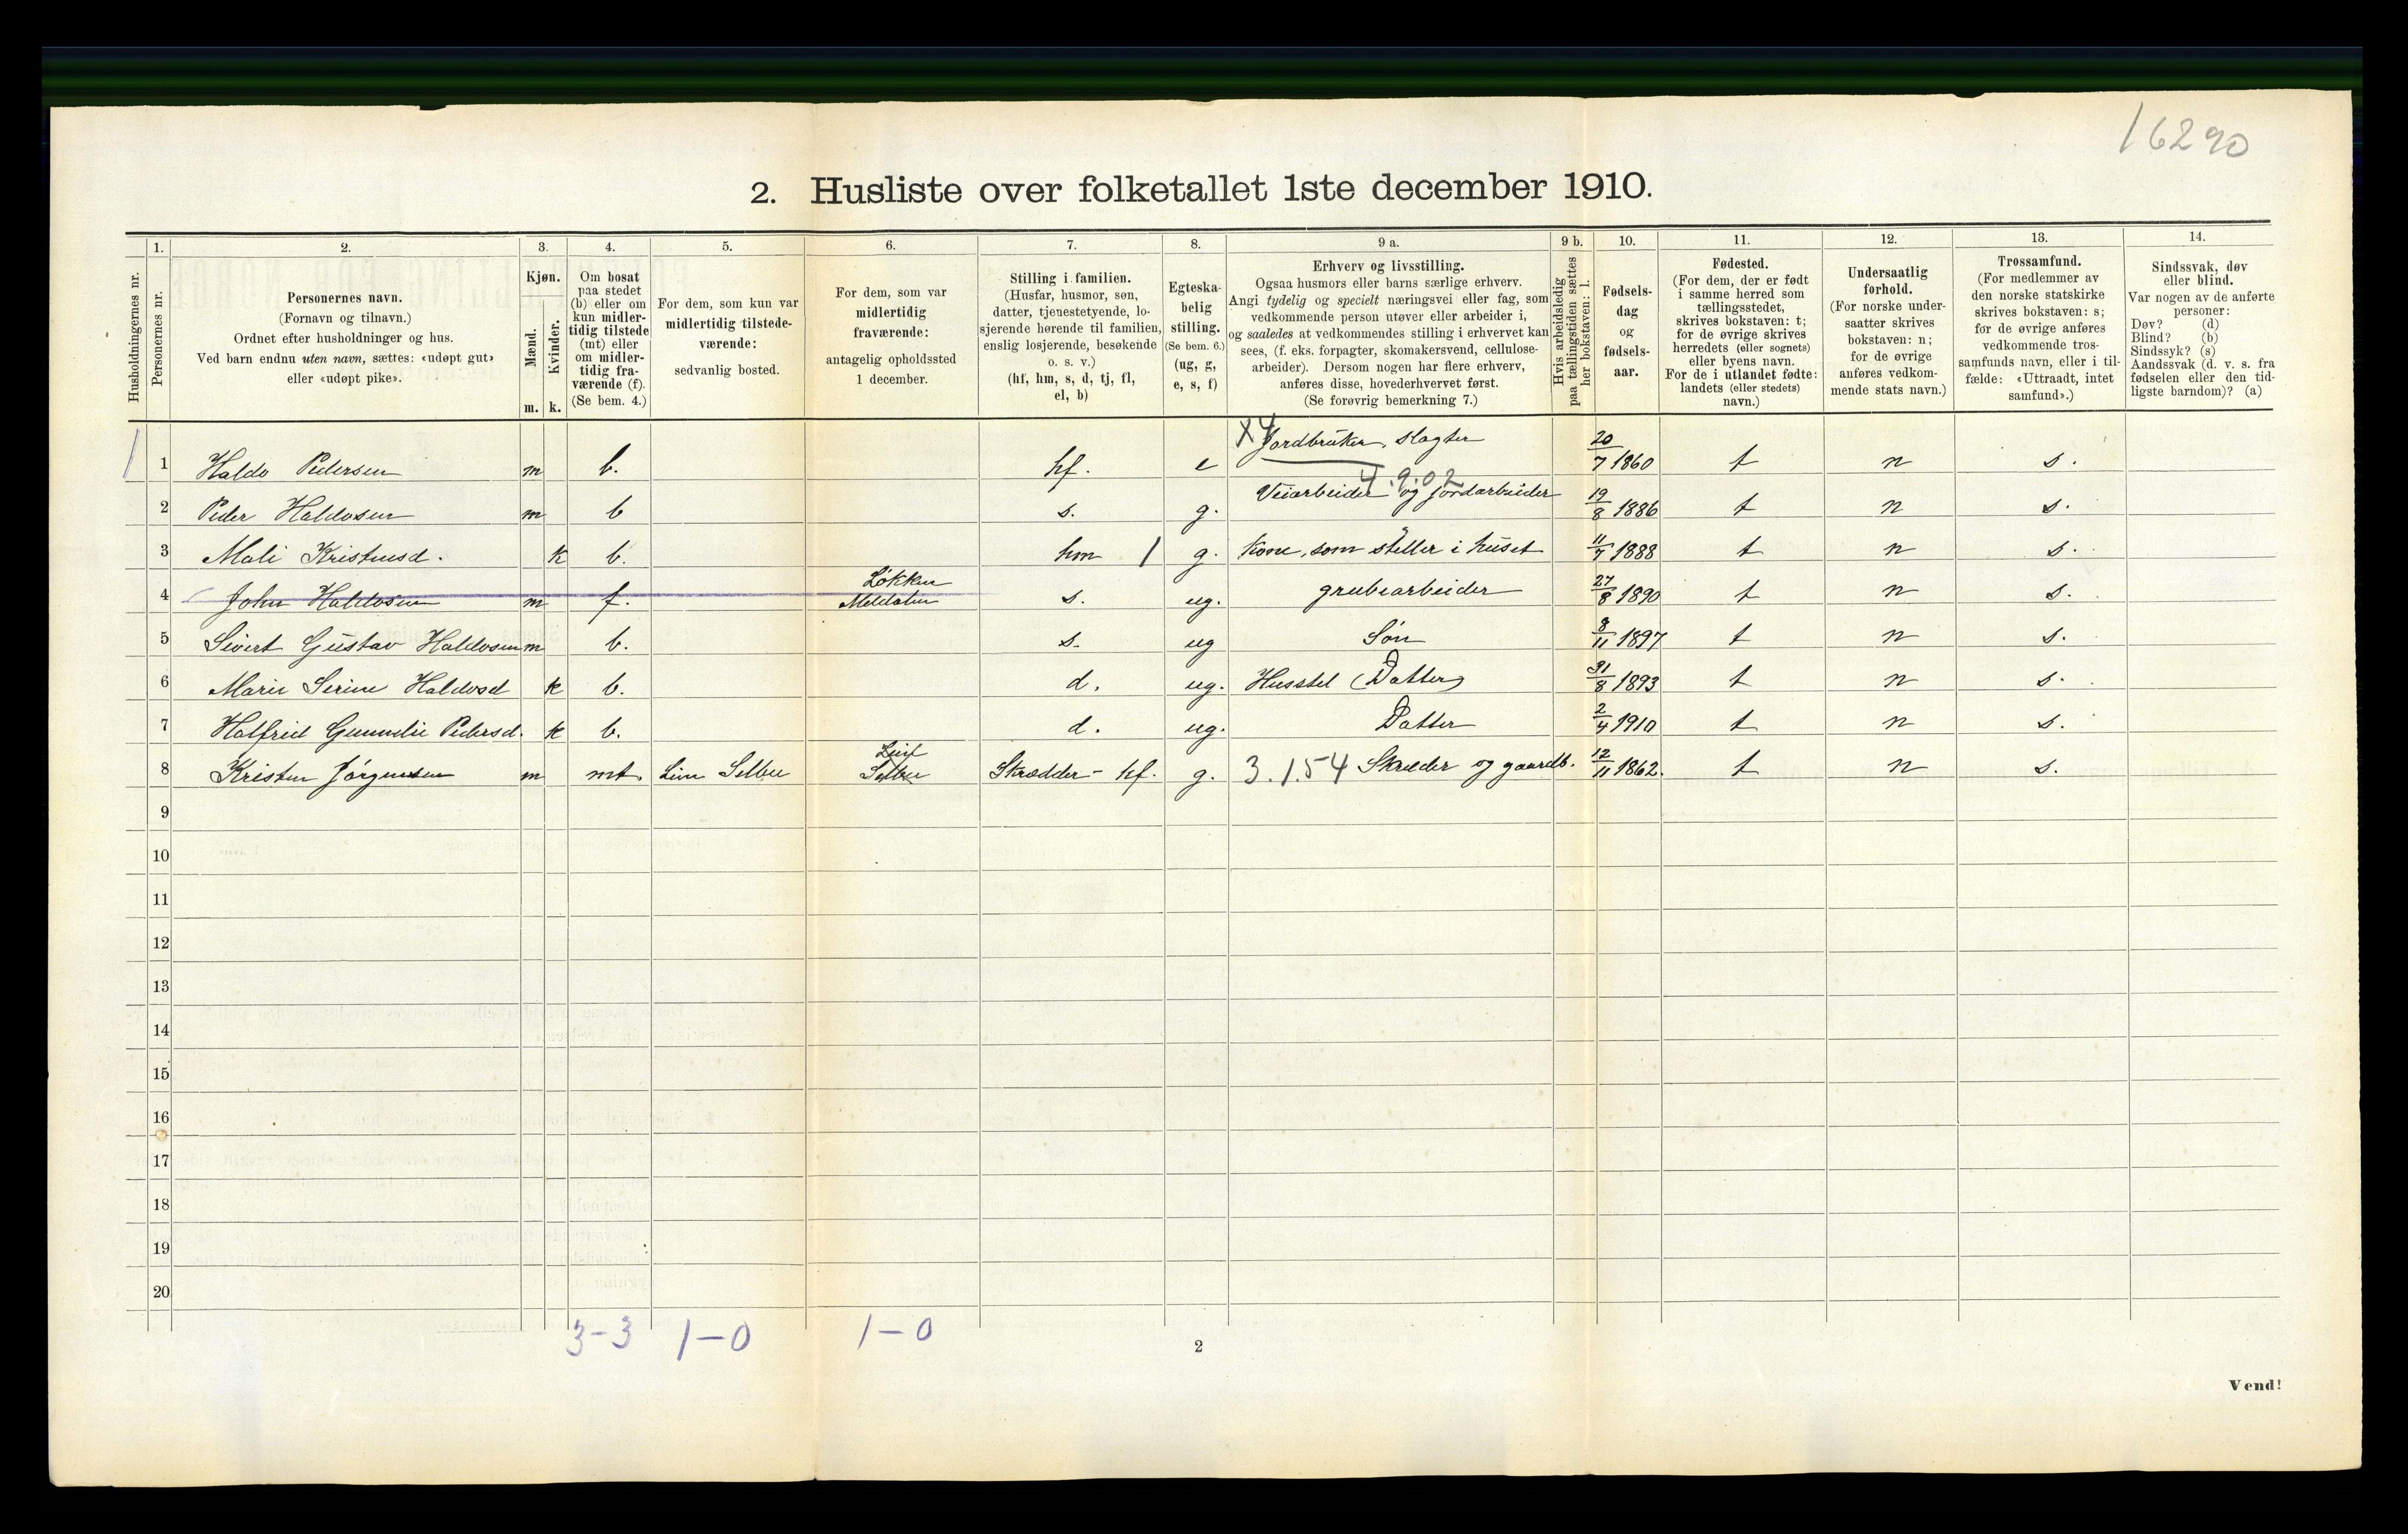 16290
2. Husliste over folketallet 1ste december 1910.
Husholdningernes nr.
1.
Personernes nr.
2.
Personernes navn.
(Fornavn og tilnavn.)
Ordnet efter husholdninger og hus.
Ved barn endnu uten navn, sættes: «udøpt gut»
eller «udøpt pike».
3.
Kjøn.
Mænd.
Kvinder.
m. k.
4.
Om bosat
paa stedet
(b) eller om
kun midler-
tidig tilstede
(mt) eller
om midler-
tidig fra-
værende (f).
(Se bem. 4.)
5.
For dem, som kun var
midlertidig tilstede-
værende:
sedvanlig bosted.
6.
For dem, som var
midlertidig
fraværende:
antagelig opholdssted
1 december.
7.
Stilling i familien.
(Husfar, husmor, søn,
datter, tjenestetyende, lo-
sjerende hørende til familien,
enslig losjerende, besøkende
o. s. v.)
(hf, hm, s, d, tj, fl,
el, b)
8.
Egteska-
belig
stilling.
(Se bem. 6.)
(ug, g,
e, s, f)
9 a.
Erhverv og livsstilling.
Ogsaa husmors eller barns særlige erhverv.
Angi tydelig og specielt næringsvei eller fag, som
vedkommende person utøver eller arbeider i,
og saaledes at vedkommendes stilling i erhvervet kan
sees, (f. eks. forpagter, skomakersvend, cellulose-
arbeider). Dersom nogen har flere erhverv,
anføres disse, hovederhvervet først.
(Se forøvrig bemerkning 7.)
9 b.
Hvis arbeidsledig
paa tællingstiden sættes
her bokstaven: l.
10.
Fødsels-
dag
og
fødsels-
aar.
11.
Fødested.
(For dem, der er født
i samme herred som
tællingsstedet,
skrives bokstaven: t;
for de øvrige skrives
herredets (eller sognets)
eller byens navn.
For de i utlandet fødte:
landets (eller stedets)
navn.)
12.
Undersaatlig
forhold.
(For norske under-
saatter skrives
bokstaven: n;
for de øvrige
anføres vedkom-
mende stats navn.)
13.
Trossamfund.
(For medlemmer av
den norske statskirke
skrives bokstaven: s;
for de øvrige anføres
vedkommende tros-
samfunds navn, eller i til-
fælde: «Uttraadt, intet
samfund».)
14.
Sindssvak, døv
eller blind.
Var nogen av de anførte
personer:
Døv? (d)
Blind? (b)
Sindssyk? (s)
Aandssvak (d. v. s. fra
fødselen eller den tid-
ligste barndom)? (a)
1 1 Haldo Pedersen m b. hf. e X4 Jordbruker, slagter 20/7 1860 t n s.
4.9.02
2 Peder Haldosen m b s. g. Veiarbeider og jordarbeider 19/8 1886 t n s.
3 Mali Kristensd. k b. hm 1 g. Kone, som steller i huset 11/7 1888 t n s.
Løkken
4 John Haldosen m f. Meldalen s. ug. grubearbeider 27/8 1890 t n s.
5 Sivert Gustav Haldosen m b. s. ug Søn 8/11 1897 t n s.
6 Marie Serine Haldosd k b. d. ug. Husstel (Datter) 31/8 1893 t n s.
7 Halfrid Gunnelie Pedersd. k b. d. ug. Datter 2/4 1910 t n s.
8 Kristen Jørgensen m mt. Lien Selbu Selbu Skrædder - hf. g. 3.1.54 Skræder og gaardb. 12/11 1862. t n s.
9
10
11
12
13
14
15
16
17
18
19
20
3-3 1-0 1-0
2
Vend!